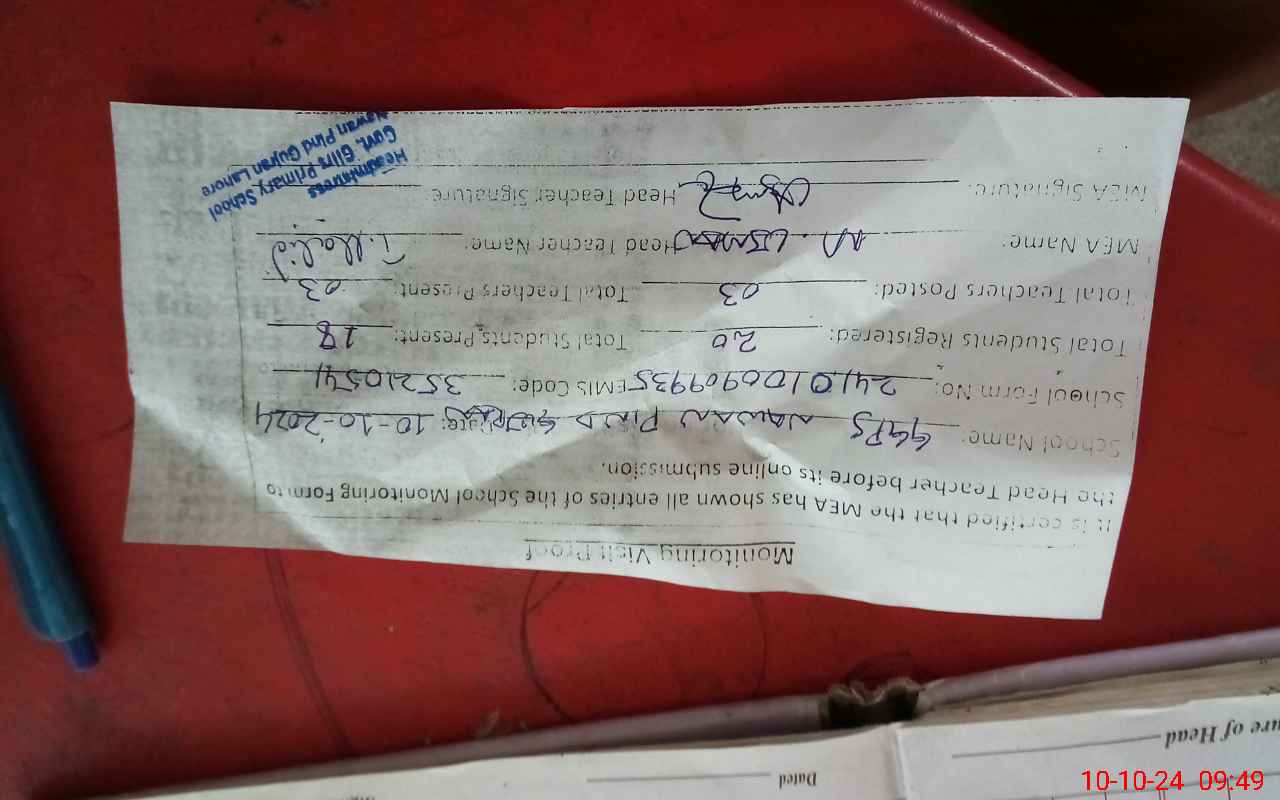 Monitoring Visit Proof
It is certified that the MEA has shown all entries of the School Monitoring Form to
the Head Teacher before its online submission.
School Name: GGPS NAWAN PIND GUJRAN Date: 10-10-2024
School Form No: 24101009099935 EMIS Code: 35210541
Total Students Registered: 20 Total Students Present: 18
Total Teachers Posted: 03 Total Teachers Present: 03
MEA Name: M. USMAN Head Teacher Name: T. Khalid
MEA Signature: Head Teacher Signature:
Headmistress
Govt. Girls Primary School
Nawan Pind Gujran Lahore
ure of Head
Dated
10-10-24 09:49